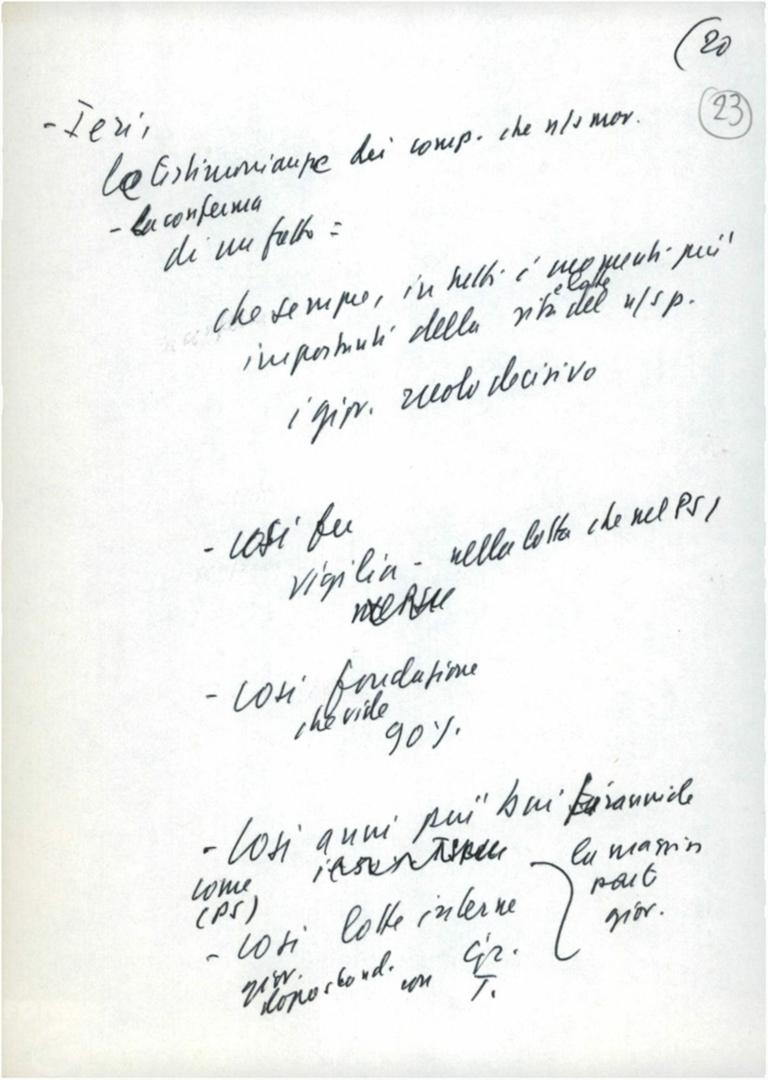 (20
23
- Ieri,
le testimonianze dei comp. che n/s mov.
- la conferma
di un fatto =
che sempre, in tutti i momenti più
importanti della vita e lotte del n/s p.
i giov. ruolo decisivo
- così fu
vigilia - nella lotta che nel PSI
- così fondazione
che vide
90%.
- così anni più bui tirannide
come
(PS)
la massim
parte
giov.
- così lotte interne
giov.
dopo
con Gr.
T.